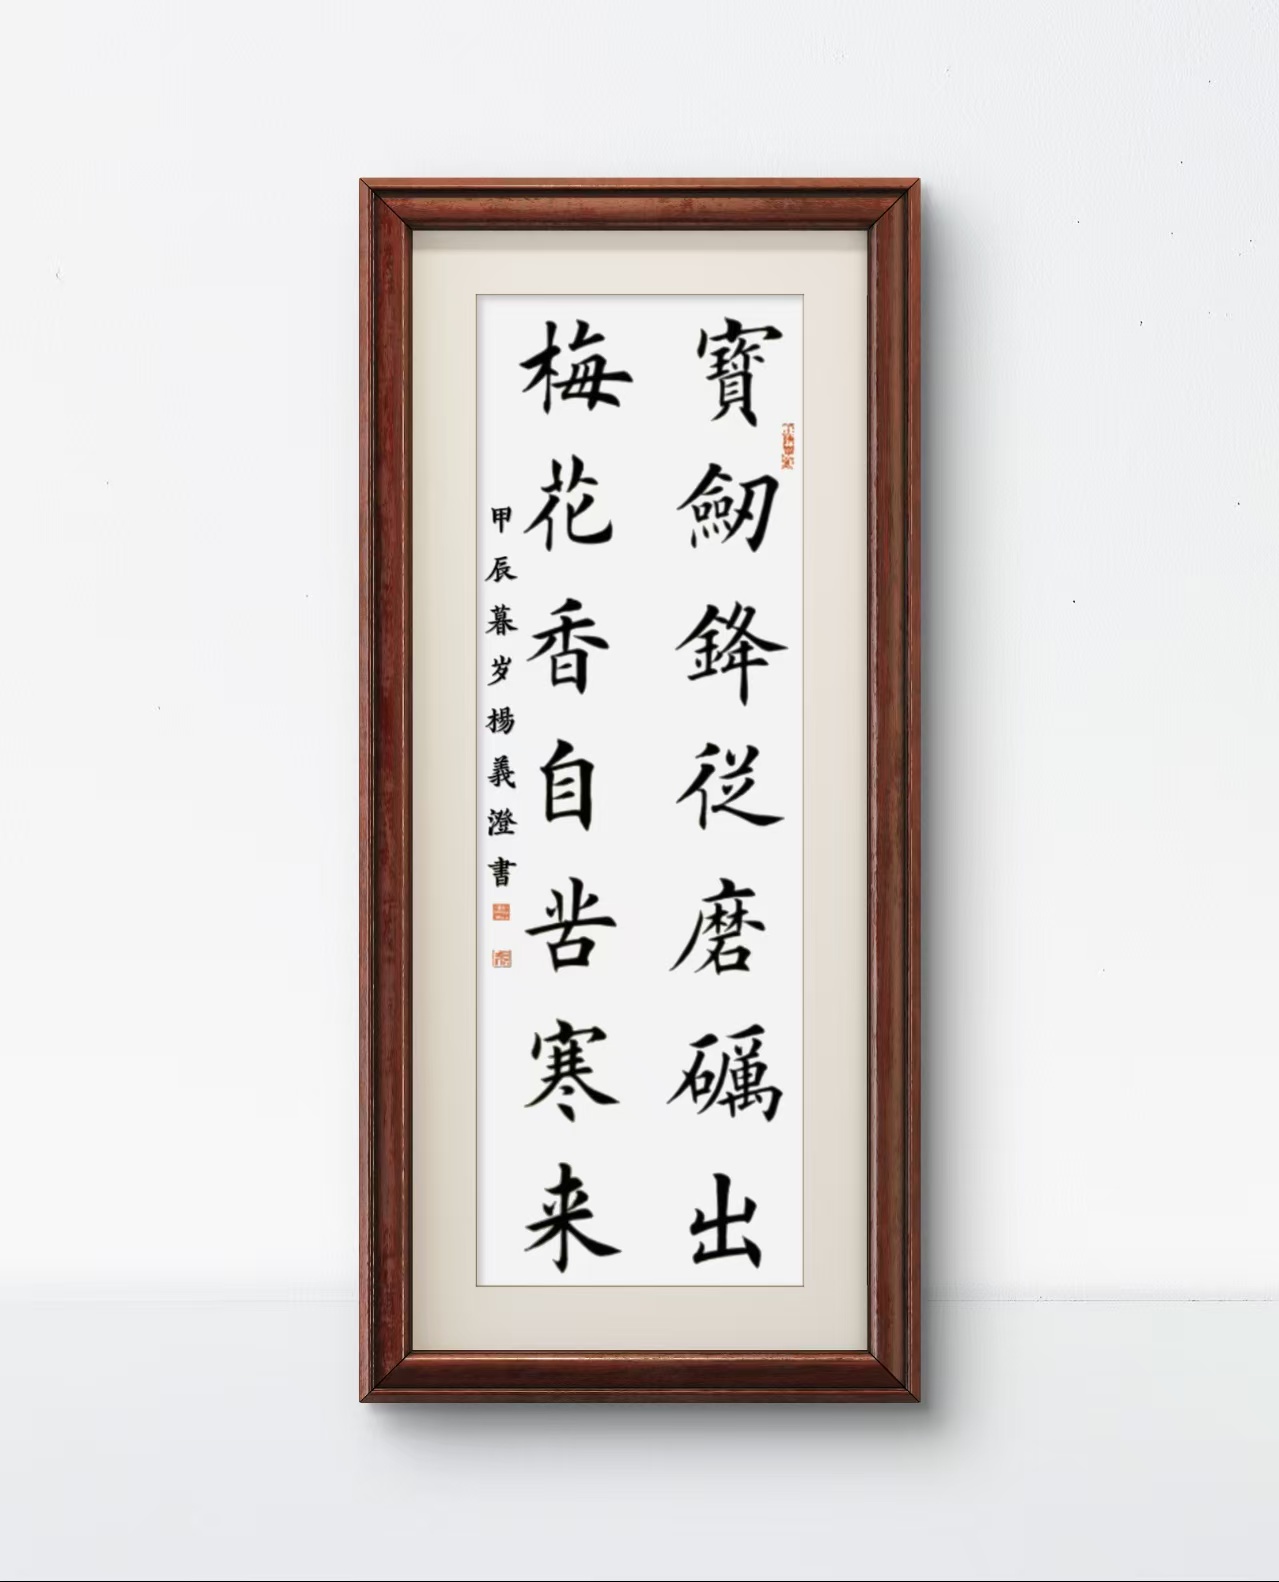 寶劒鋒從磨礪出
梅花香自苦寒来
甲辰暮岁楊義澄書